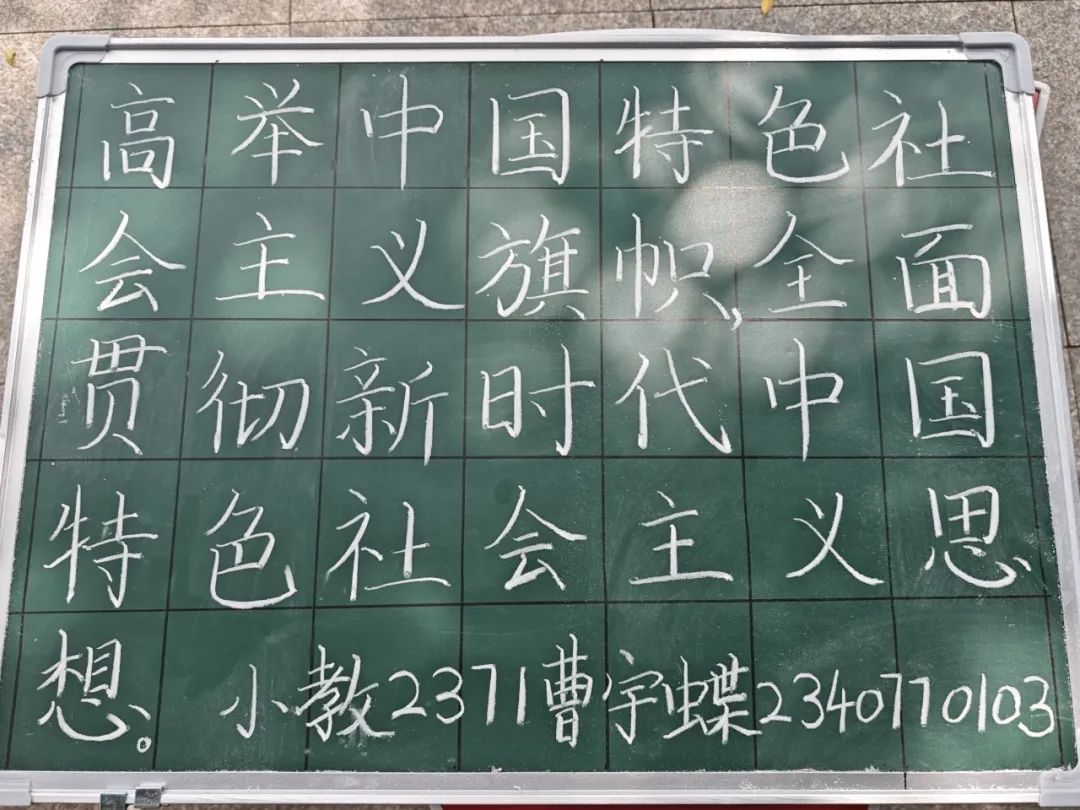 高举中国特色社
会主义旗帜,全面
贯彻新时代中国
特色社会主义思
想。小教2371曹宇蝶2340770103